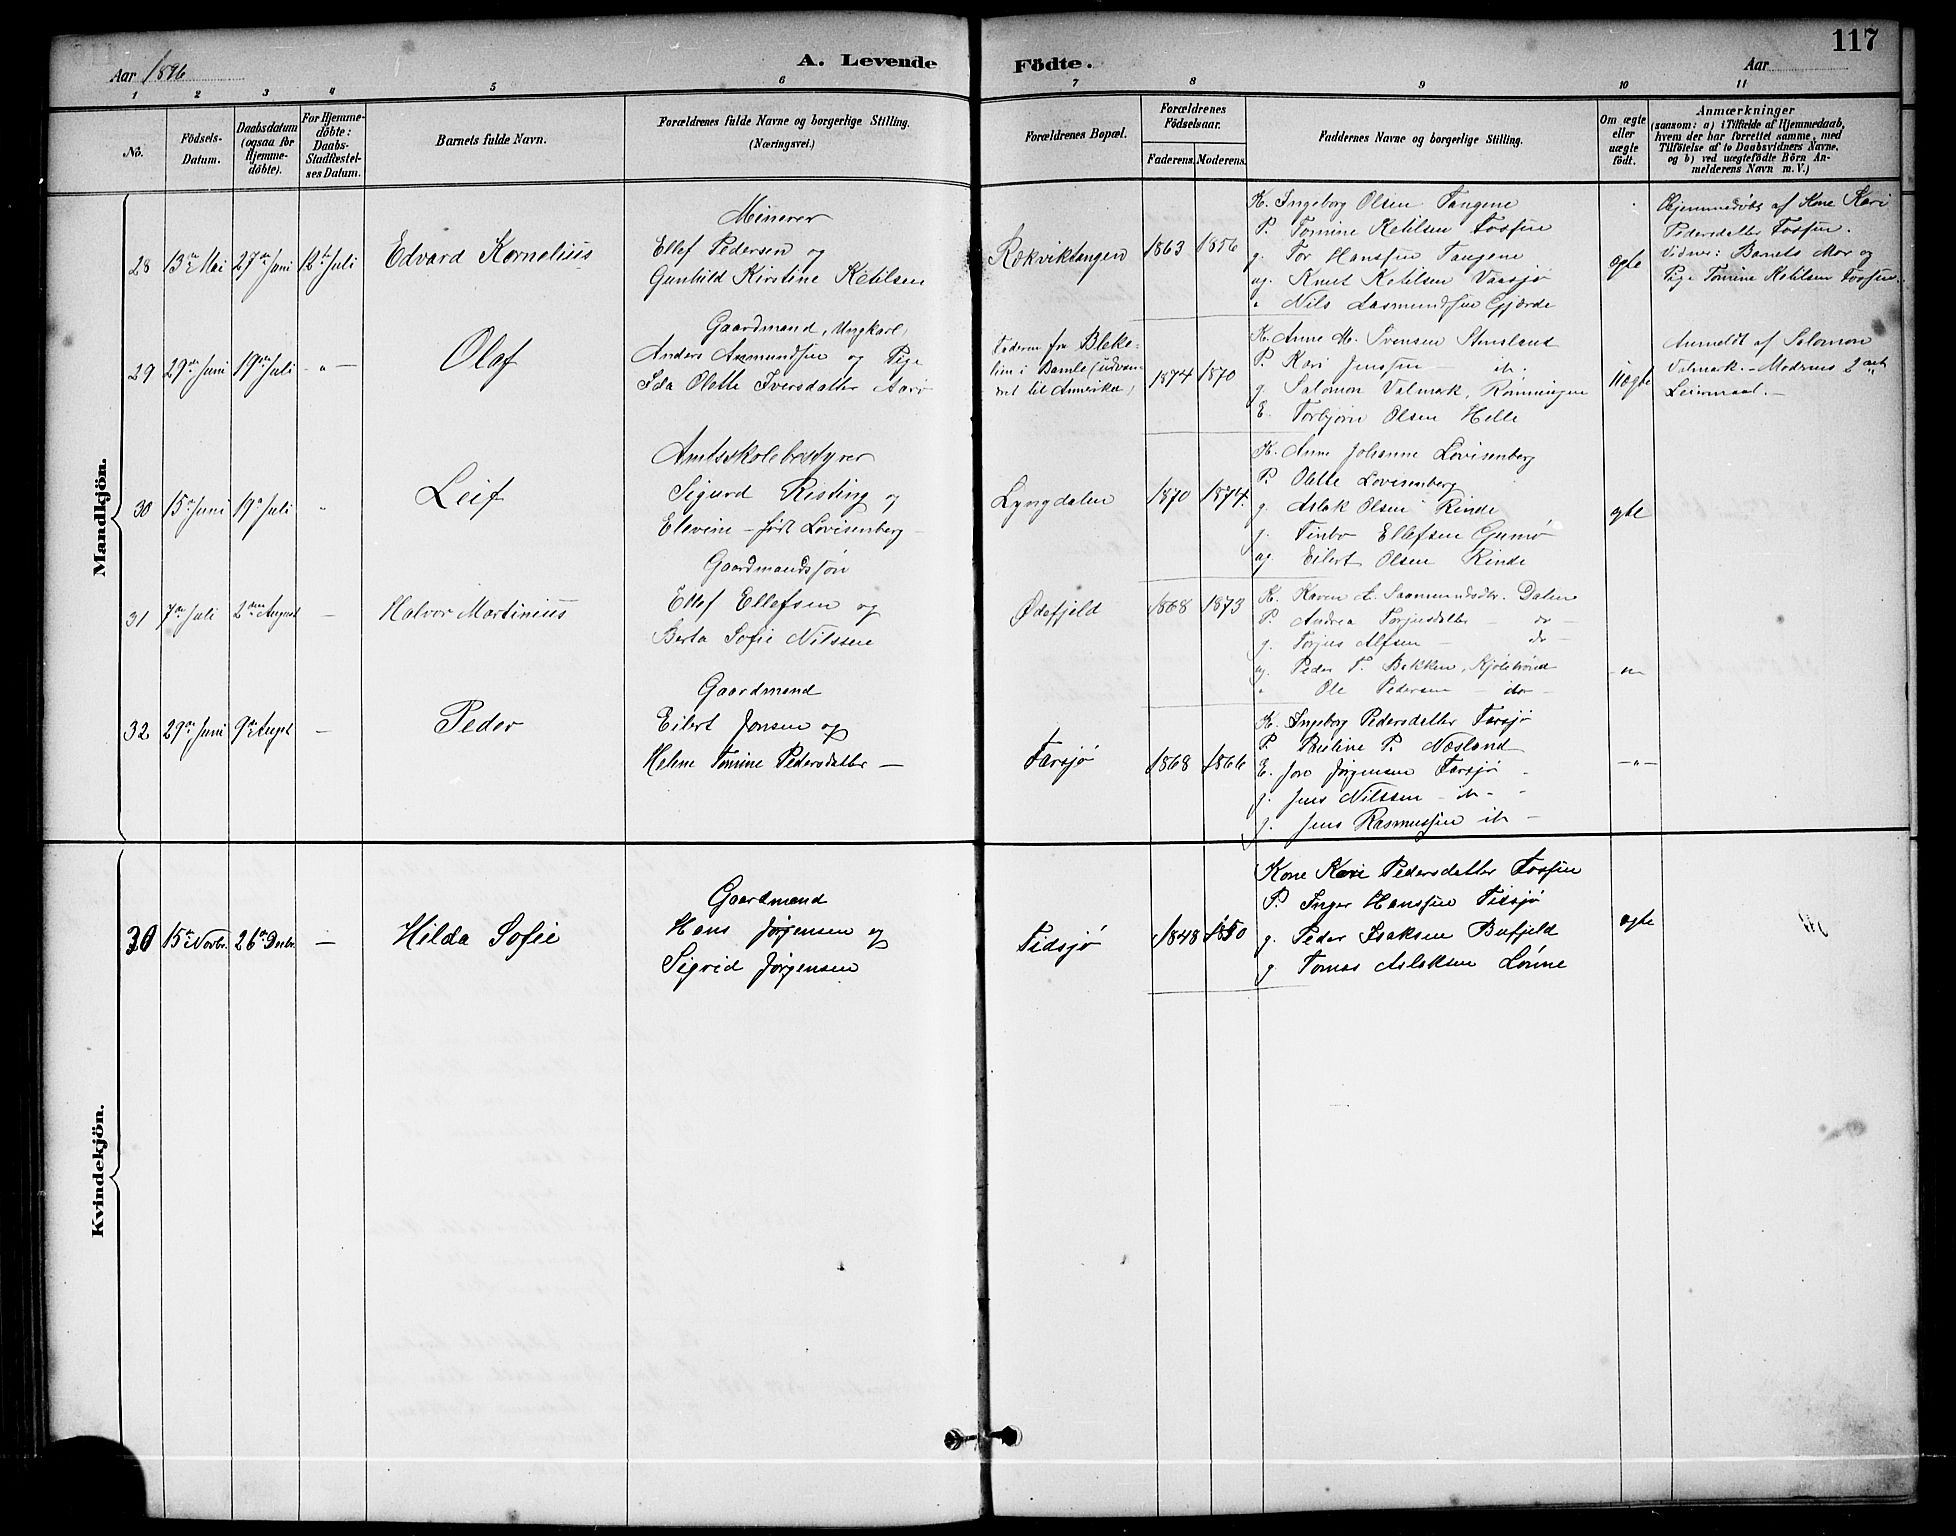 117
Aar 1896
A. Levende
Födte.
Aar
1 2 3 4 5 6 7 8 9 10 11
No.
Födsels-Datum.
Daabsdatum (ogsaa for Hjemme-döbte).
For Hjemme-döbte: Daabs-Stadfæstel-ses Datum.
Barnets fulde Navn.
Forældrenes fulde Navne og borgerlige Stilling. (Næringsvei.)
Forældrenes Bopæl.
Forældrenes Födselsaar.
Faderens. Moderens.
Faddernes Navne og borgerlige Stilling.
Om ægte eller uægte födt.
Anmærkninger
(saasom: a) i Tilfælde af Hjemmedaab,
hvem der har forrettet samme, med
Tilföielse af to Daabsvidners Navne,
og b) ved uægtefödte Börn An-
melderens Navn m. V.)
Mandkjön.
28 13de Mai 27de Juni 12te Juli Edvard Kornelius
Minerer
Ellef Pedersen og
Gunhild Kirstine Ketilsen
Rækviktangen 1863 1856
K. Ingeborg Olsen Tangene
P. Tomine Ketilsen Fossen
g. Tor Hanssen Tangene
ug. Knut Ketilsen Vaasjø
" Nils Aasmundsen Gjerde
ægte
Hjemmedøbt af Kone Kari
Pedersdatter Fossen.
Vidner: Barnets Mor og
Pige Tomine Ketilsen Fossen.
29 29de Juni 19de Juli - " - Olaf
Gaardmand, Ungkarl,
Anders Amundsen og Pige
Ida Olette Iversdatter Aarø
Faderen fra Bleke-
lien i Bamle (udvan-
dret til Amerika)
1874 1870
K. Anne M. Svensen Stensland
P. Kari Jenssen - it.
g. Salomon Valmark, Rønningen
E. Torbjørn Olsen Helle
Uægte
Anmeldt af Salomon
Valmark. - Moderens 2det
Leiermaal. -
30 15de Juni 19de Juli " Leif
Amtsskolebestyrer
Sigurd Risting og
Elevine - født Lovisenberg -
Lyngdalen 1870 1874.
K. Anne Johanne Lovisenberg
P. Olette Lovisenberg
g. Aslak Olsen Rinde
g. Tinbo Ellefsen Gumø
ug. Eilert Olsen Rinde
ægte
31 7de Juli 2den August - Halvor Martinius
Gaardmandssøn
Ellef Ellefsen og
Berta Sofie Nilssen
Ødefjeld 1868 1873
K. Karen A. Saamundsdtr. Dalen
P. Andrea Torjusdatter - do -
g. Torjus Alfsen - do -
ug. Peder T. Bekken, Kjølebrønd
" Ole Pedersen - ido -
- " -
32 29de Juni 9de Augst - Peder
Gaardmand
Eilert Jonsen og
Helene Tomine Pedersdatter -
Farsjø 1868 1866
K. Ingeborg Pedersdatter Farsjø
P. Pauline P. Næsland
E. Jon Jørgensen Farsjø
g. Jens Nilssen - it -
g. Jens Rasmussen it -
- " -
Kvindekjön.
30 15de Novbr. 26de Decbr. - Hilda Sofie
Gaardmand
Hans Jørgensen og
Sigrid Jørgensen
Tidsjø 1848 1850
Kone Kari Pedersdatter Fossen
P. Inger Hanssen Tisjø
g. Peder Isaksen Bufjeld
g. Tomas Aslaksen Lønne
ægte